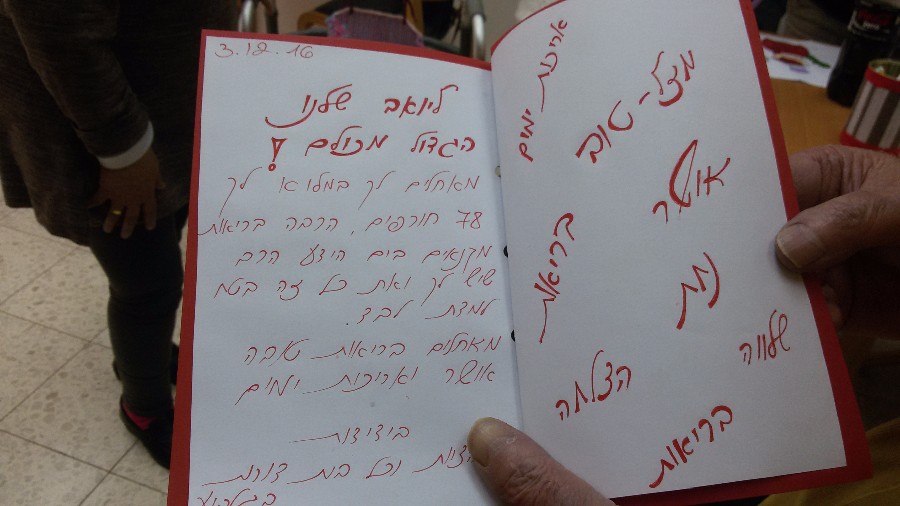 3.12.16
ליואב שלנו
הגדול מכולם!
מאחלים לך במלוא לך
78 חורפים, הרבה בריאות
מקנאים בים הידע הרב
שיש לך ואת כל זה בטח
למדת לבד.
מאחלים בריאות טובה
אושר ואריכות ימים
בידידות
וכל בת דורת
אריכות ימים
מזל-טוב
אושר
בריאות
נחת
שלווה
הצלחה
בריאות